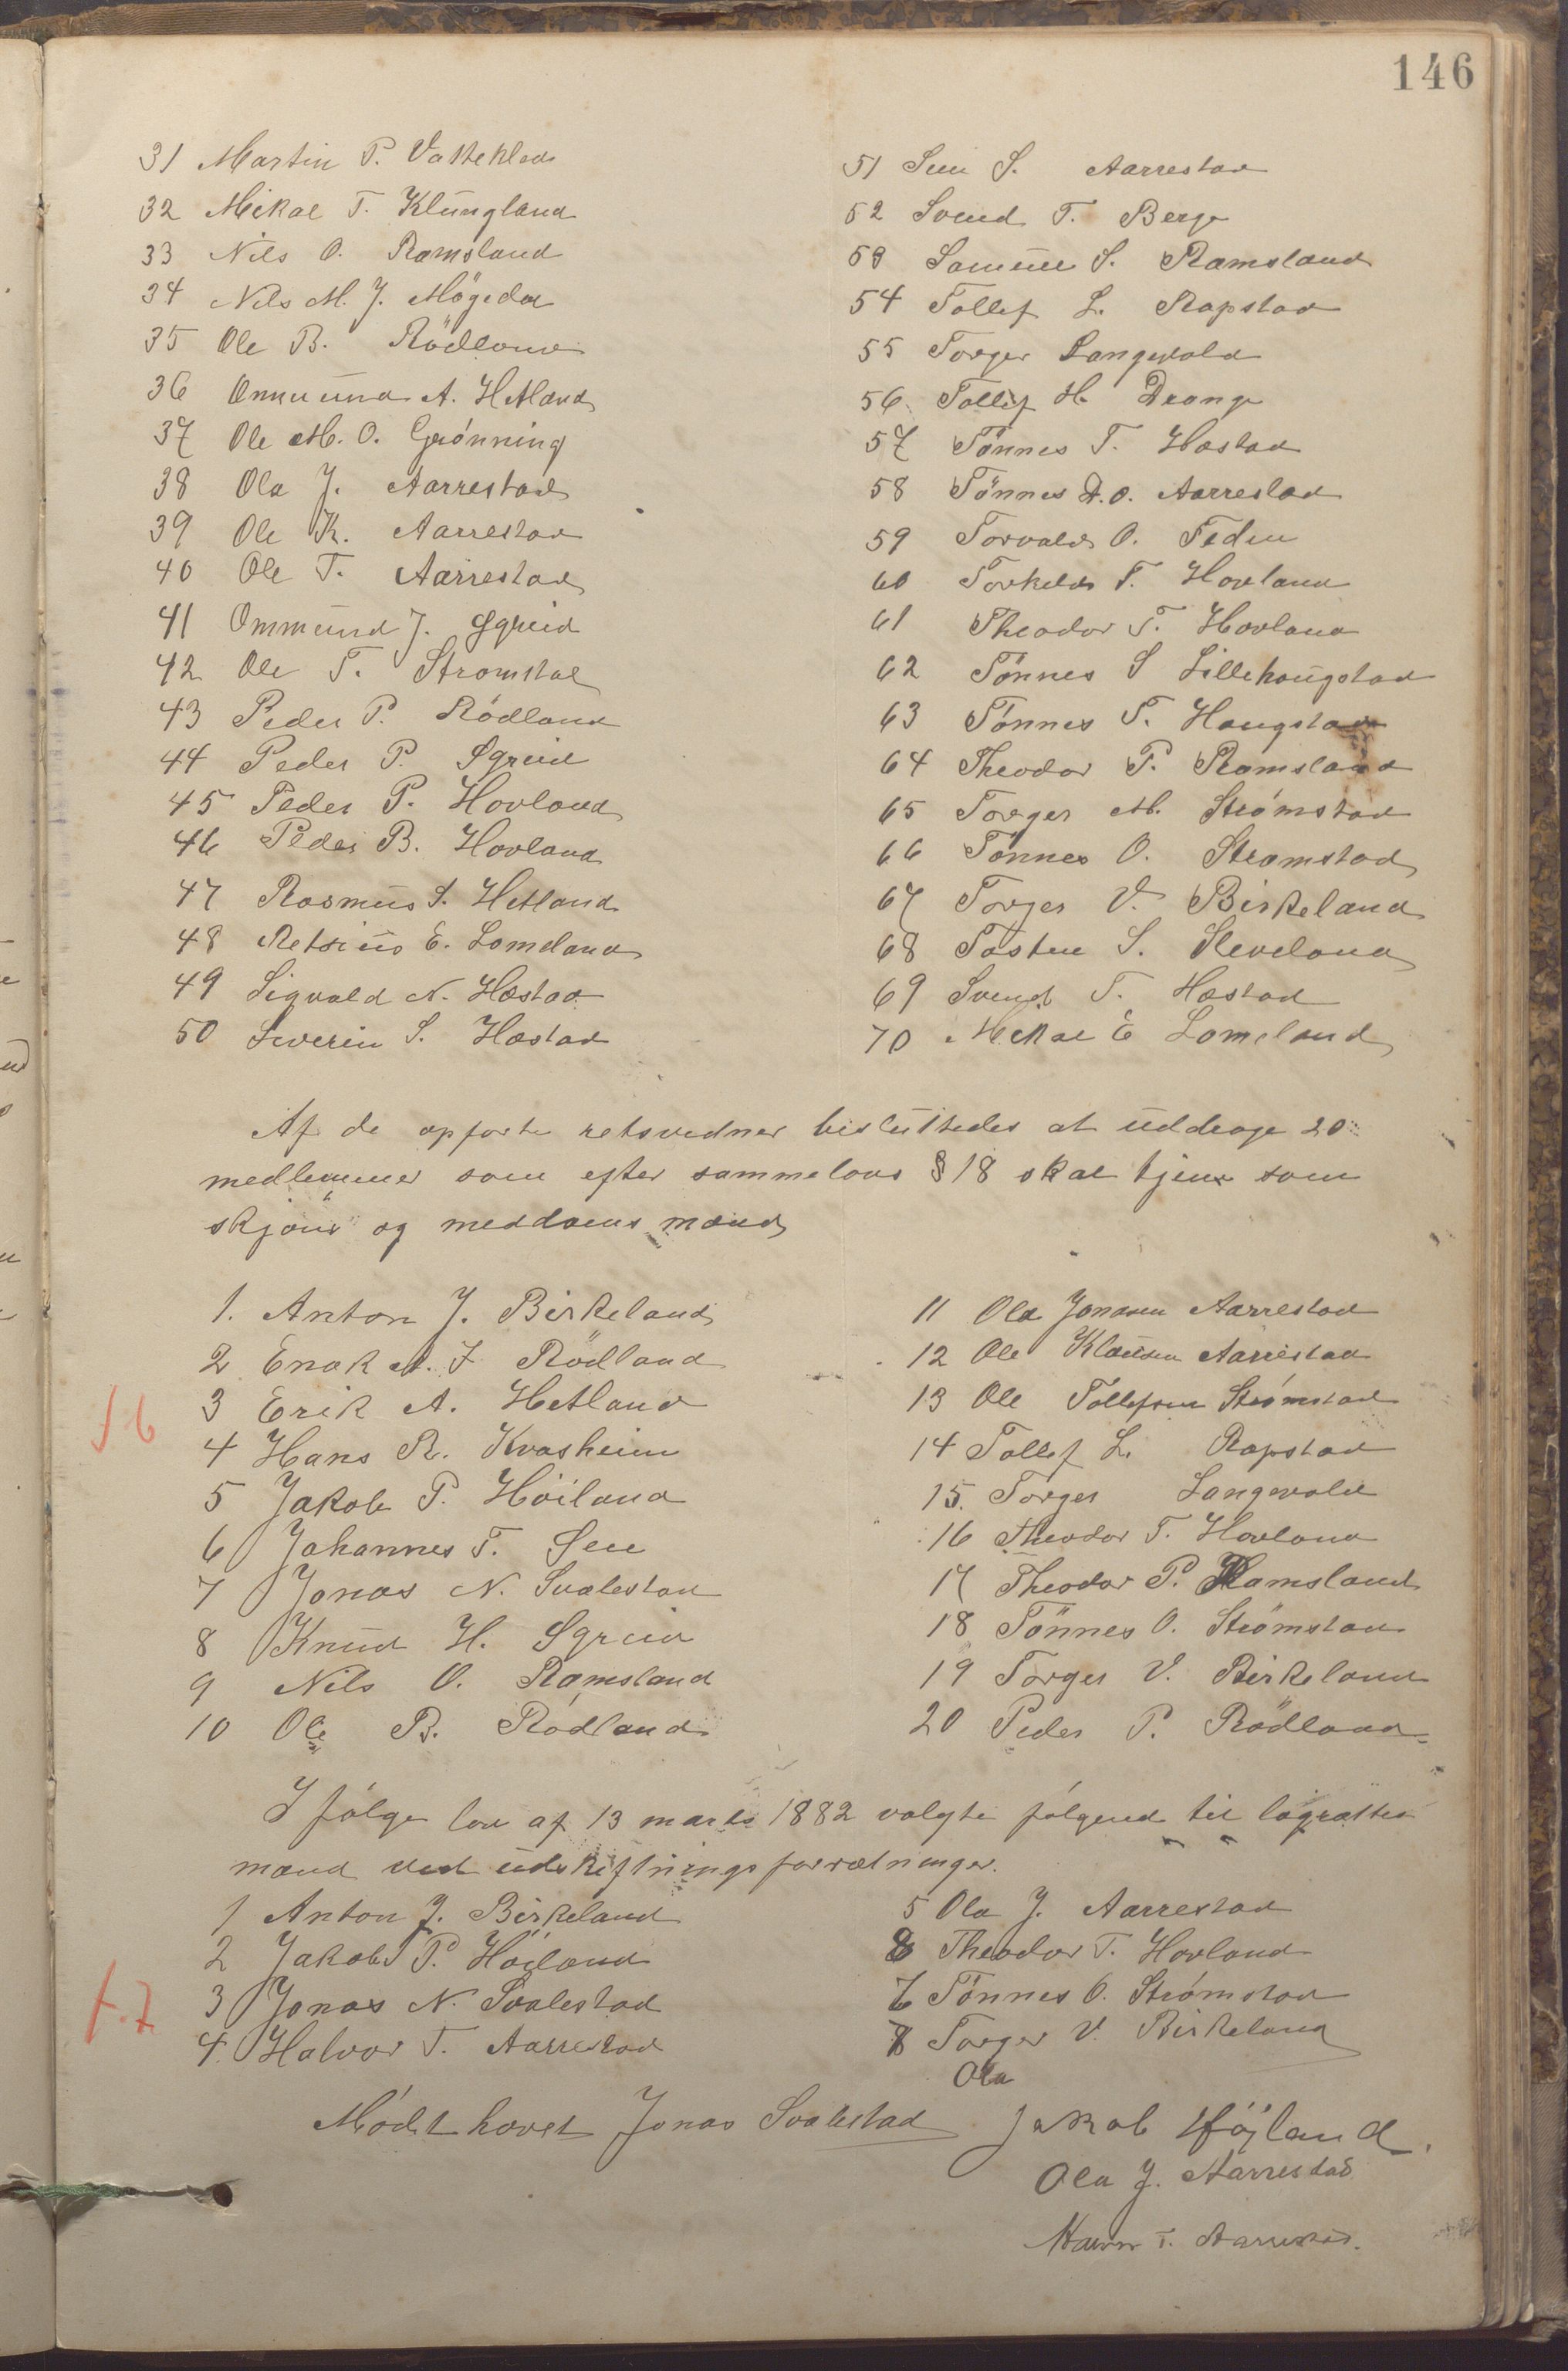 146
31 Martin P. Vatteklev
32 Mikal T. Klungland
33 Nils O. Ramsland
34 Nils M. J. Mögedal
35 Ole B. Rödland
36 Ommund A. Hetland
37 Ole M. O. Grónning
38 Ola J. Aarrestad
39 Ole K. Aarrestad
40 Ole T. Aarrestad
41 Ommund J. Egreid
42 Ole T. Stromstad
43 Peder P. Ródland
44 Peder P. Egreid
45 Peder P. Hovland
46 Peder B. Hovland
47 Rasmus S. Hetland
48 Retsius E. Lomeland
49 Sigvald N. Hæstad
50 Severin S. Hæstad
51 S. Aarrestad
52 Svend T. Berge
53 Samuel S. Ramsland
54 Tollef L. Rapstad
55 Torger Langevald
56 Tollef H. Drange
57 Tönnes T. Hæstad
58 Tönnes A. O. Aarrestad
59 Torvald O. Feden
60 Torkeld T. Hovland
61 Theodor T. Hovland
62 Tönnes S Lillehaugstad
63 Tönnes T. Haugstad
64 Theodor P. Ramsland
65 Torger M. Strómstad
66 Tönnes O. Stromstad
67 Torger V. Birkeland
68 Tosten S. Sleveland
69 Svend T. Hæstad
70 Mikal E Lomeland
Af de opførte retsvidner besluttedes at uddrage 20
medlemmer som efter sammelovs § 18 skal tjene som
skjöns og meddoms mænd
1. Anton J. Birkeland
2 Enok M. J Rödland
3 Erik A. Hetland
16
4 Hans R. Kvasheim
5 Jakob P. Höiland
6 Johannes T.
7 Jonas N. Svalestad
8 Knud H. Egreid
9 Nils O. Ramsland
10 Ole B. Ródland
11 Ola Jonasen Aarrestad
12 Ole Klausen Aarrestad
13 Ole Tollefsen Strómstad
14 Tollef L. Rapstad
15. Torger Langevald
16 Theodor T. Hovland
17 Theodor P. Ramsland
18 Tönnes O. Strömstad
19 Torger V. Birkeland
20 Peder P. Rödland
I fólge lov af 13 marts 1882 valgte fólgend til lagrettes
mænd ved udskiftnings forretninger.
1 Anton J. Birkeland
2 Jakob P. Höiland
3 Jonas N. Svalestad
4. Halvor T. Aarrestad
5 Ola J. Aarrestad
6 Theodor T. Hovland
7 Tónnes O. Strómstad
8 Torger V. Birkeland
Ola
Módet hævet Jonas Svalestad Jakob Höjland.
Ola J. Aarrestad
Halvor T. Aarrestad.